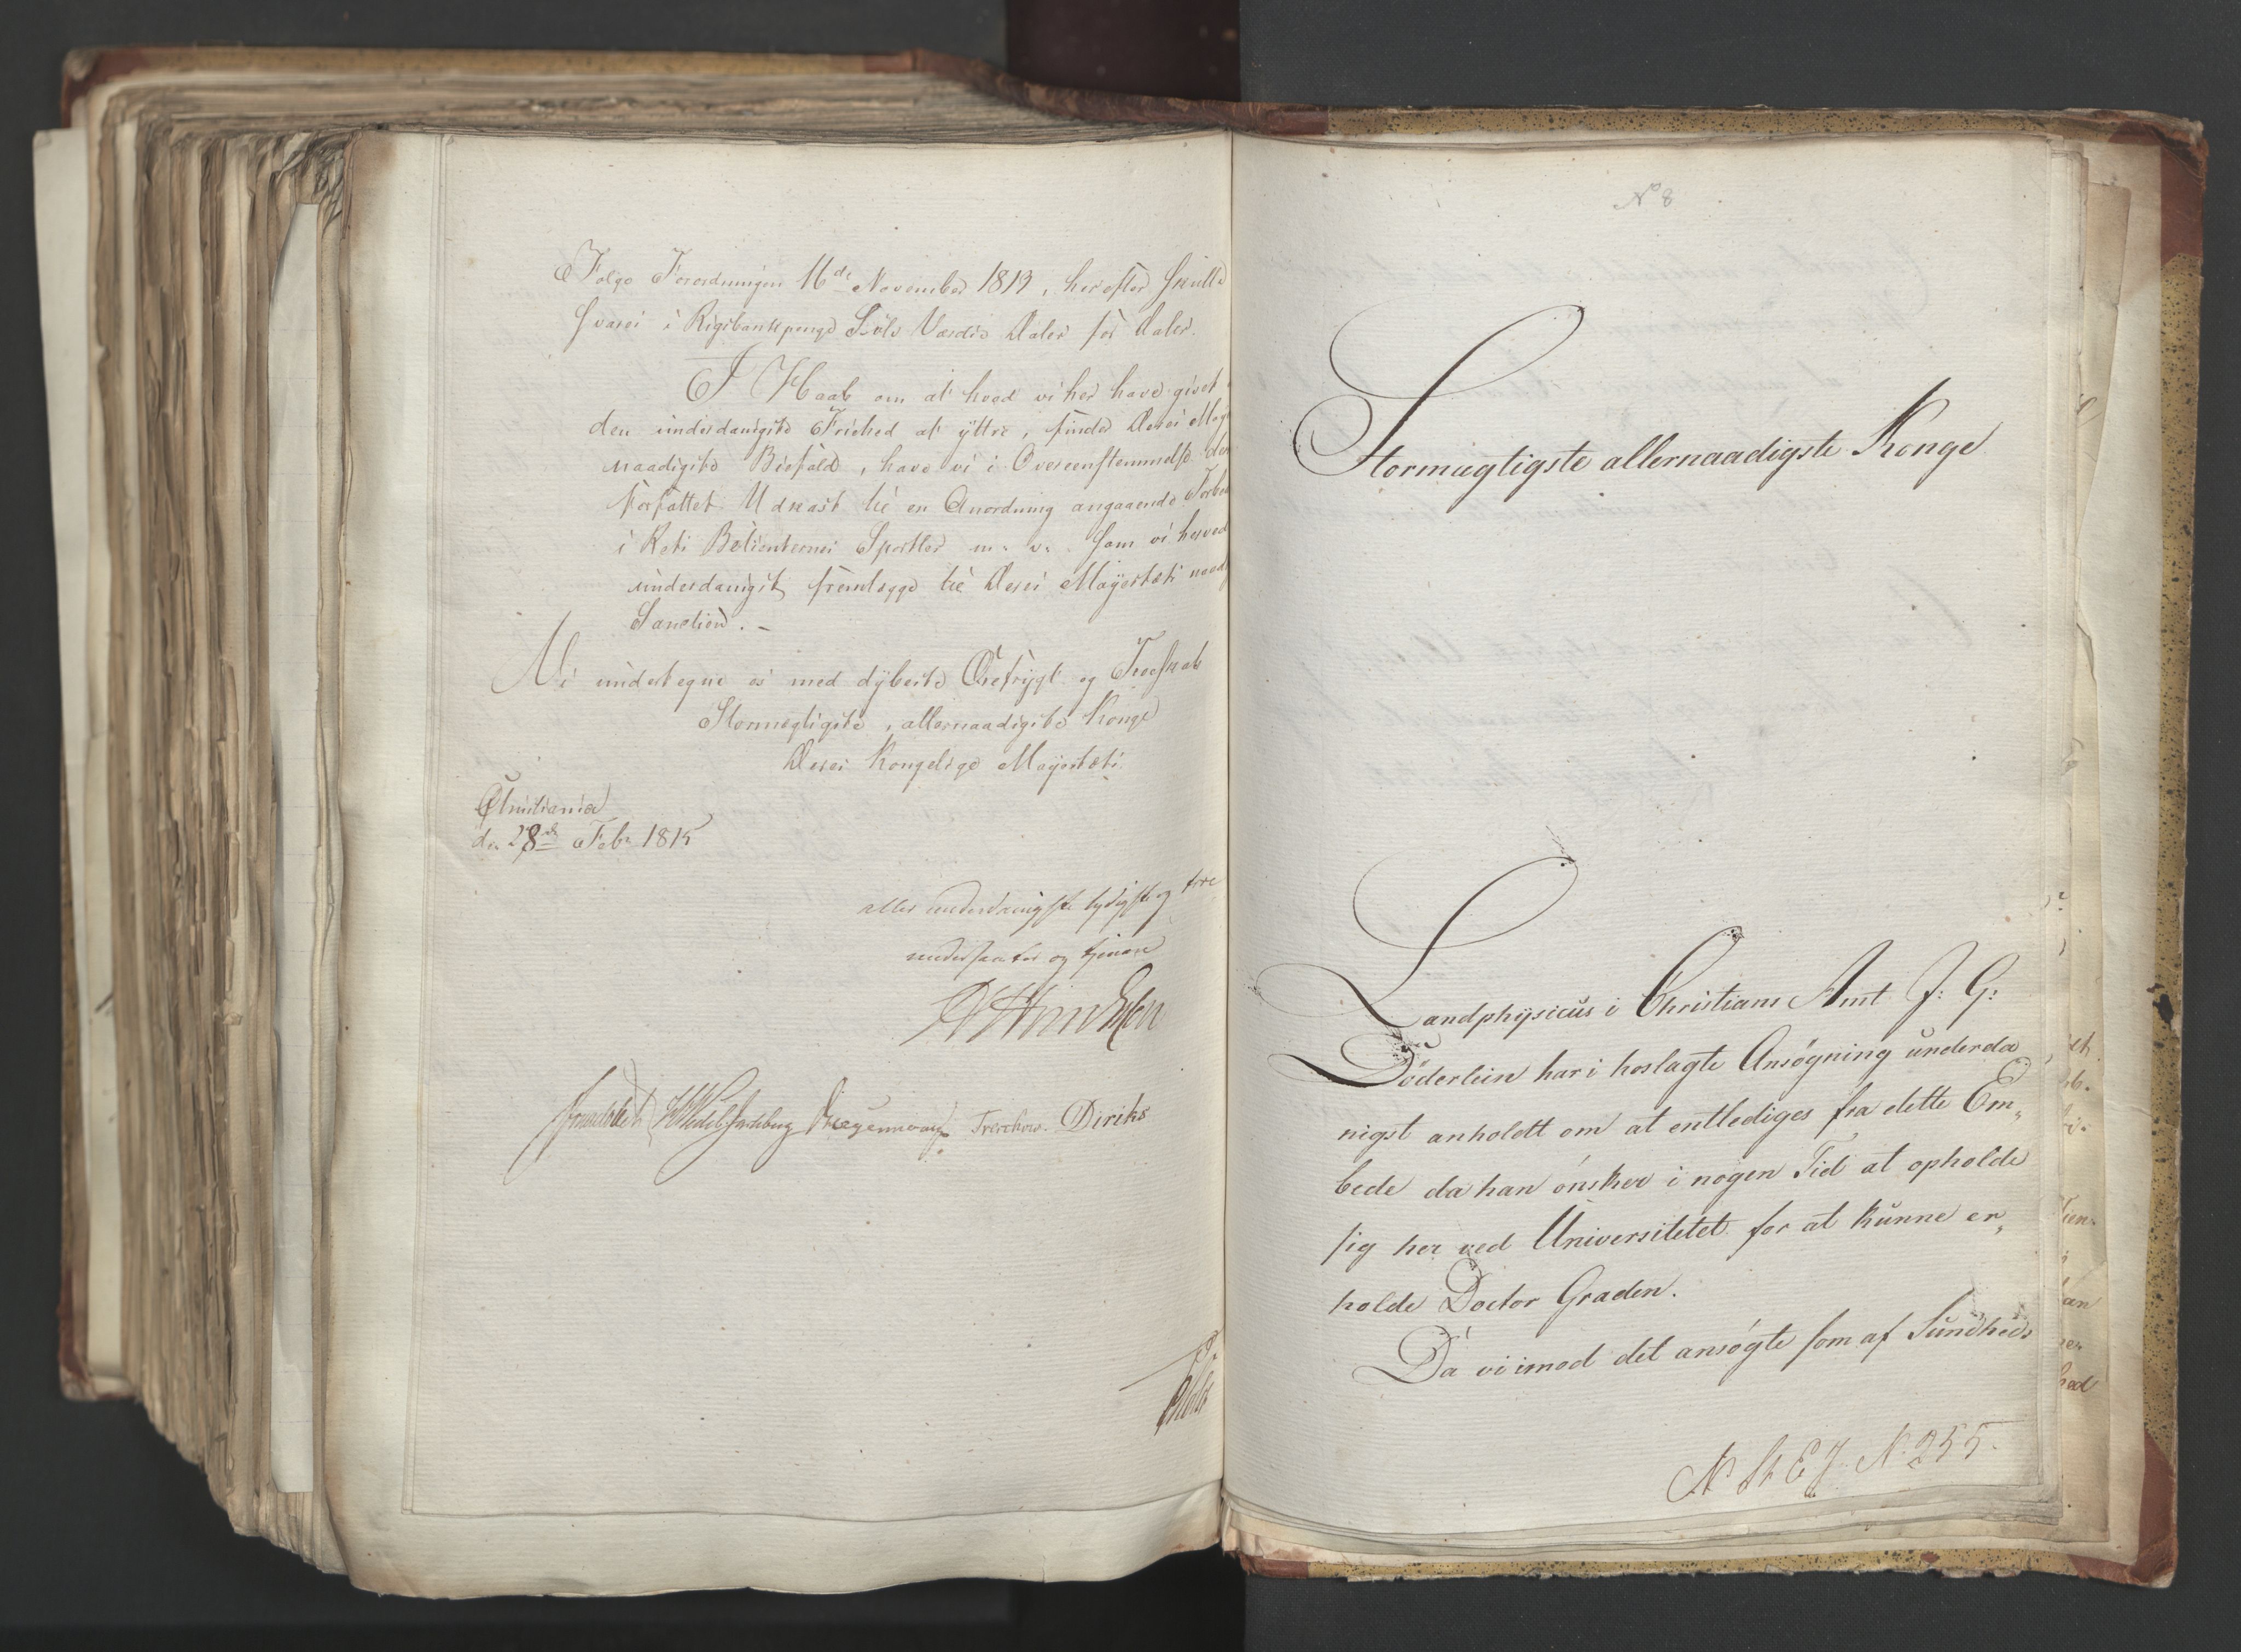 Følge Forordningen 16de November 1813, herefter skulle
svares i Rigsbankpenge Sølv Værdie Daler for Daler.
I Haab om at hvad vi her have givet
den underdanigste Friehed at yttre, finder Deres May
naadigste Biefald, have vi i Overeensstemmelse der
forfattet Udkast til en Anordning angaaende Forbed
i Rets Betienternes Sportler m. v. som vi herved
underdanigst fremlægge til Deres Mayestæts naad
Sanction. -
Vi undertegne os med dybeste Ærefrygt og Troeskab
Stormægtigste, allernaadigste Konge
Deres Kongelige Mayestæts
Christiania
den 28de Febr 1815
aller underdanigste lydigste og troe
undersaatter og tjenere
Sommerhielm HWedelJarlsberg Krogemann Treschow. Diriks
N° 8
Stormægtigste allernaadigste Konge
Landphysicus i Christians Amt J: G:
Döderlein har i hoslagte Ansøgning underda
nigst anholdt om at entlediges fra dette Em„
bede da han ønsker i nogen Tid at opholde
sig her ved Universitetet for at kunne er„
holde Doctor Graden.
Da vi imod det ansøgte som af Sundheds
N. St. E J. N. 255.